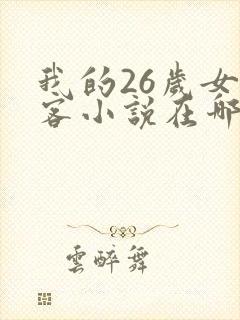 我的26歲女
客小說在哪
雲醉舞